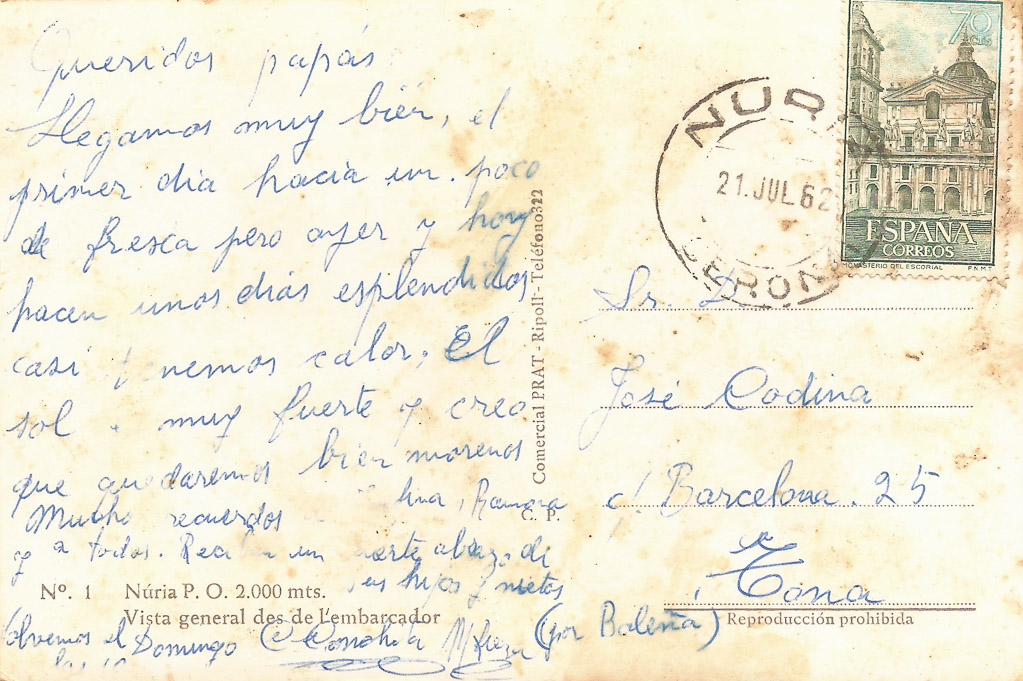 Queridos papás
Llegamos muy bien, el
primer dia hacia un poco
de fresca pero ayer y hoy
hacen unos dias esplendidos
casi tenemos calor; El
sol muy fuerte y creo
que quedaremos bien morenos
Mucho recuerdos Ramona
y a todos. un abrazo de
hijos y nietos
el Domingo
Nº. 1 Núria P. O. 2.000 mts.
Vista general des de l'embarcador
Comercial PRAT - Ripoll - Teléfono 322
C. P.
NURIA
21. JUL 62
GERONA
70 cts
ESPAÑA
CORREOS
MONASTERIO DEL ESCORIAL F.N.M.T.
Sr. D.
José Codina
c/ Barcelona. 25
Tona
(por Baleña)
Reproducción prohibida